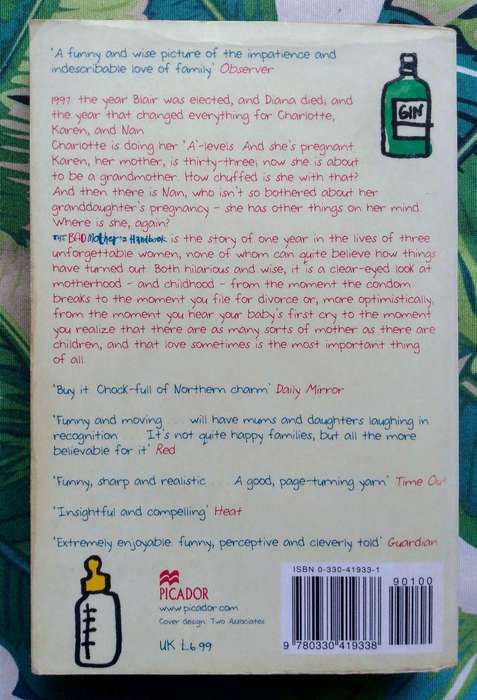 'A funny and wise picture of the impatience and
indescribable love of family' Observer
GIN
1997: the year Blair was elected, and Diana died; and
the year that changed everything for Charlotte,
Karen, and Nan.
Charlotte is doing her 'A'-levels. And she's pregnant.
Karen, her mother, is thirty-three; now she is about
to be a grandmother. How chuffed is she with that?
And then there is Nan, who isn't so bothered about her
granddaughter's pregnancy - she has other things on her mind.
Where is she, again?
THE BAD Mother's Handbook is the story of one year in the lives of three
unforgettable women, none of whom can quite believe how things
have turned out. Both hilarious and wise, it is a clear-eyed look at
motherhood - and childhood - from the moment the condom
breaks to the moment you file for divorce or, more optimistically,
from the moment you hear your baby's first cry to the moment
you realize that there are as many sorts of mother as there are
children, and that love sometimes is the most important thing
of all.
'Buy it. Chock-full of Northern charm' Daily Mirror
'Funny and moving . . . will have mums and daughters laughing in
recognition . . . It's not quite happy families, but all the more
believable for it' Red
'Funny, sharp and realistic . . . A good, page-turning yarn' Time Out
'Insightful and compelling' Heat
'Extremely enjoyable: funny, perceptive and cleverly told' Guardian
PICADOR
www.picador.com
Cover design: Two Associates
UK £6.99
ISBN 0-330-41933-1
90100
9 780330 419338